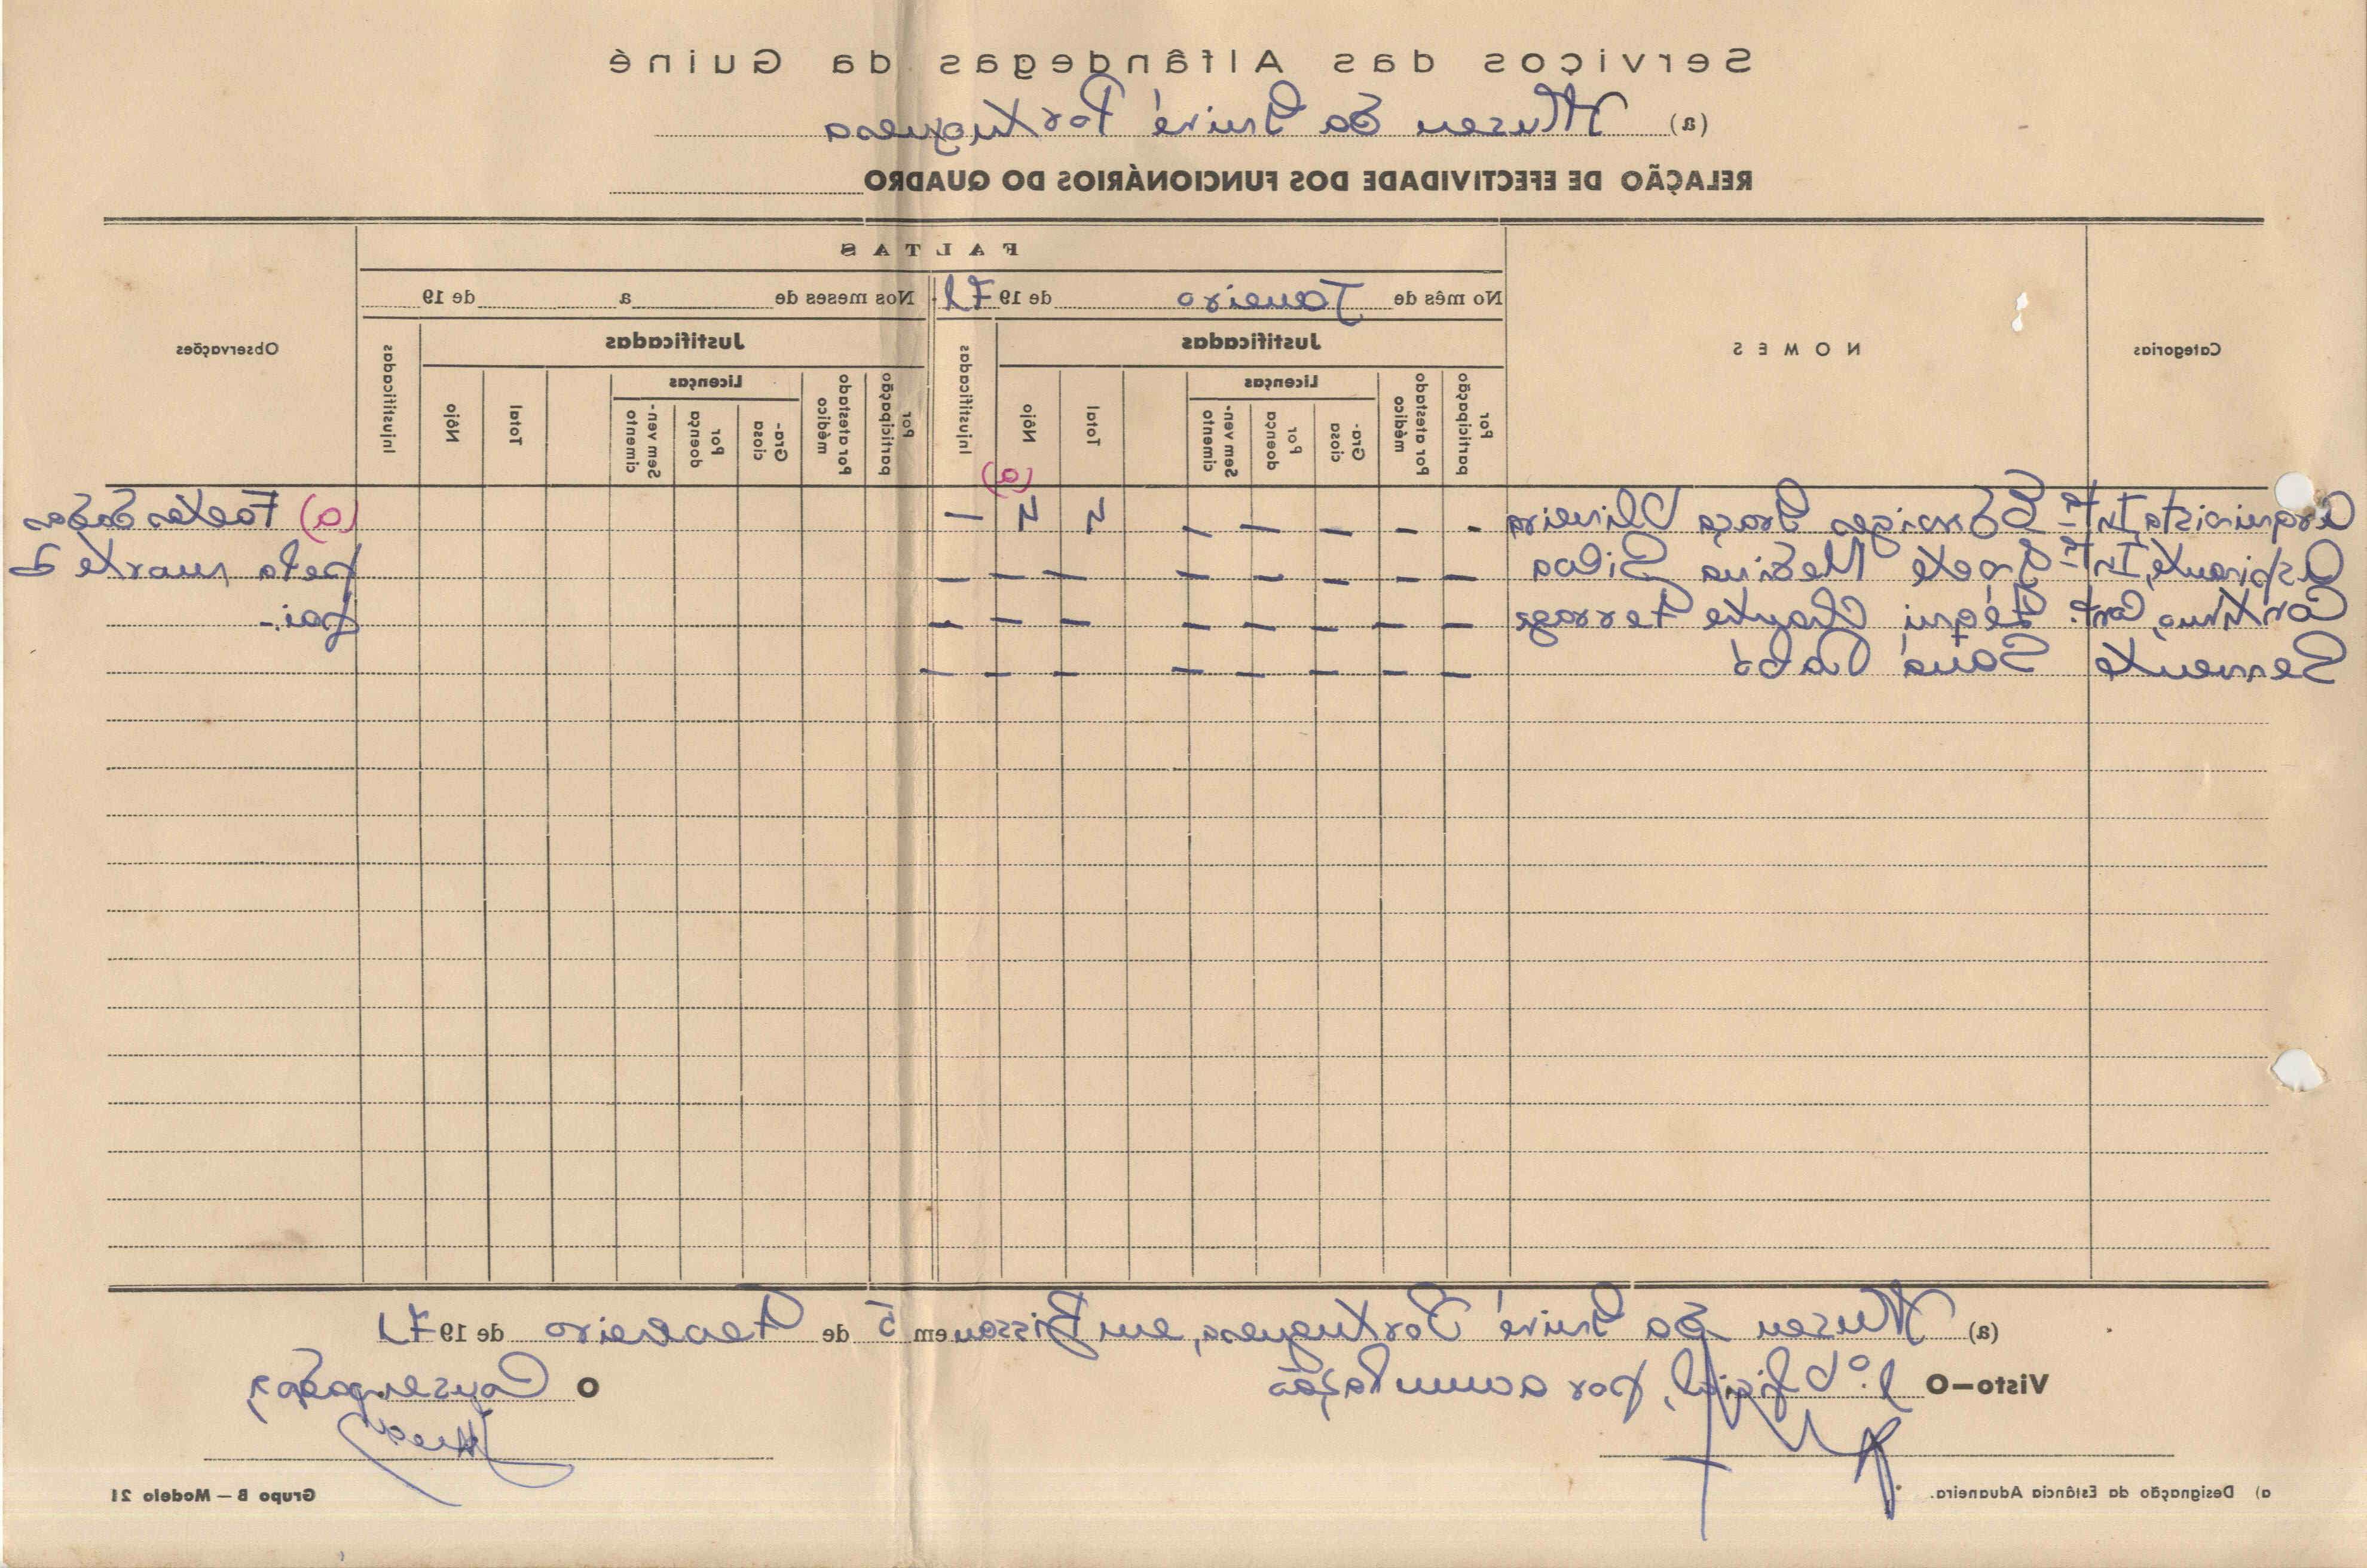 Serviços das Alfândegas da Guiné
(a) Museu da Guiné Portuguesa
RELAÇÃO DE EFECTIVIDADE DOS FUNCIONÁRIOS DO QUADRO
Categorias
NOMES
FALTAS
Observações
No mês de Janeiro de 1971
Nos meses de a de 19
Justificadas
Injustificadas
Justificadas
Injustificadas
Por participação
Por atestado médico
Licenças
Gra-ciosa
Por doença
Sem ven-cimento
Total
Nôjo
Por participação
Por atestado médico
Licenças
Gra-ciosa
Por doença
Sem ven-cimento
Total
Nôjo
(a)
Arquivista, Intº Edwiges Graça Oliveira - - - - - 4 4 - (a) Faltas dadas
Aspirante, Intº Ivete Medina Silva - - - - - - - - pela morte d
Contínuo, Cont. Duarte - - - - - - - - pai.-
Servente Saná Dabó - - - - - - - -
(a) Museu da Guiné Portuguesa, em Bissau em 5 de Fevereiro de 1971
Visto—O 1.º Oficial, por acumulação
O
a) Designação da Estância Aduaneira.
Grupo B — Modelo 21